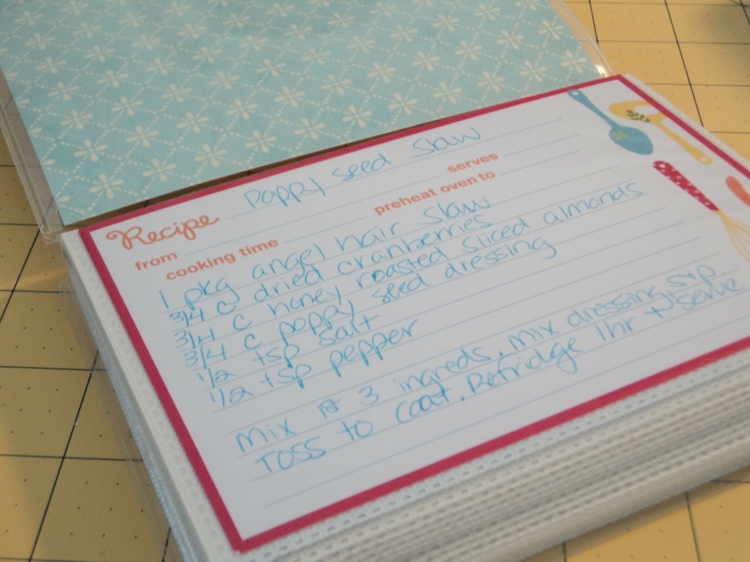 Recipe poppy seed slaw
from serves
cooking time preheat oven to
1 pkg angel hair slaw
3/4 c dried cranberries
3/4 c honey roasted sliced almonds
3/4 c poppy seed dressing
1/2 tsp salt
1/2 tsp pepper
Mix 1st 3 ingreds. Mix dressing, s+p.
Toss to coat. Refridge 1hr + serve